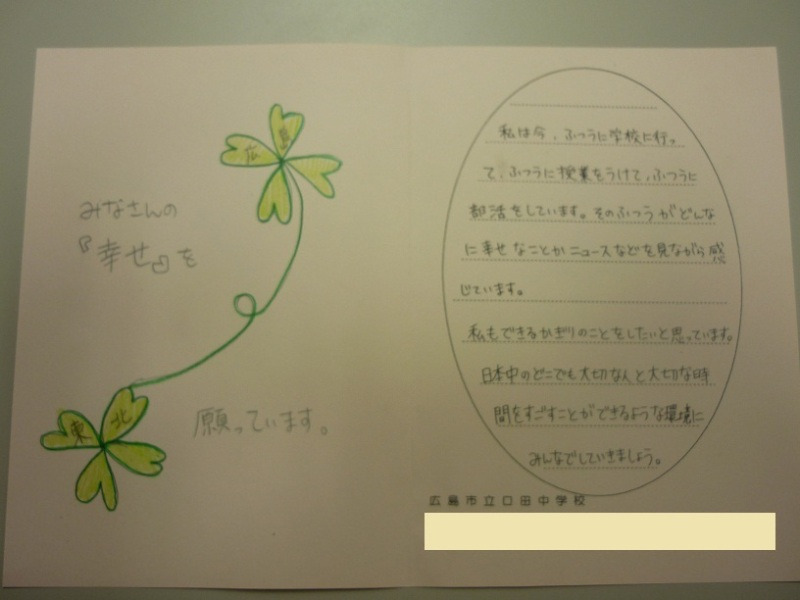 広島
みなさんの
『幸せ』を
東北
願っています。
私は今、ふつうに学校に行っ
て、ふつうに授業をうけて、ふつうに
部活をしています。そのふつうがどんな
に幸せなことかニュースなどを見ながら感
じています。
私もできるかぎりのことをしたいと思っています。
日本中のどこでも大切な人と大切な時
間をすごすことができるような環境に
みんなでしていきましょう。
広島市立口田中学校